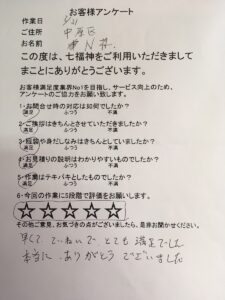 お客様アンケート
作業日 5/21
ご住所 中原区
お名前 N 様
この度は、七福神をご利用いただきまして
まことにありがとうございます。
お客様満足度業界No1を目指し、サービス向上のため、
アンケートのご協力をお願い致します。
1・お問合せ時の対応は如何でしたか?
満足 ふつう 不満
2・ご挨拶はきちんとさせていただきましたか?
満足 ふつう 不満
3・服装や身だしなみはきちんとしていましたか?
満足 ふつう 不満
4・お見積りの説明はわかりやすいものでしたか?
満足 ふつう 不満
5・作業はテキパキとしたものでしたか?
満足 ふつう 不満
6・今回の作業に5段階で評価をお願いします。
☆☆☆☆☆
その他ご意見、お気づきの点がございましたら、是非お聞かせください。
早くて、ていねいで、とても満足でした
本当に ありがとう ございました